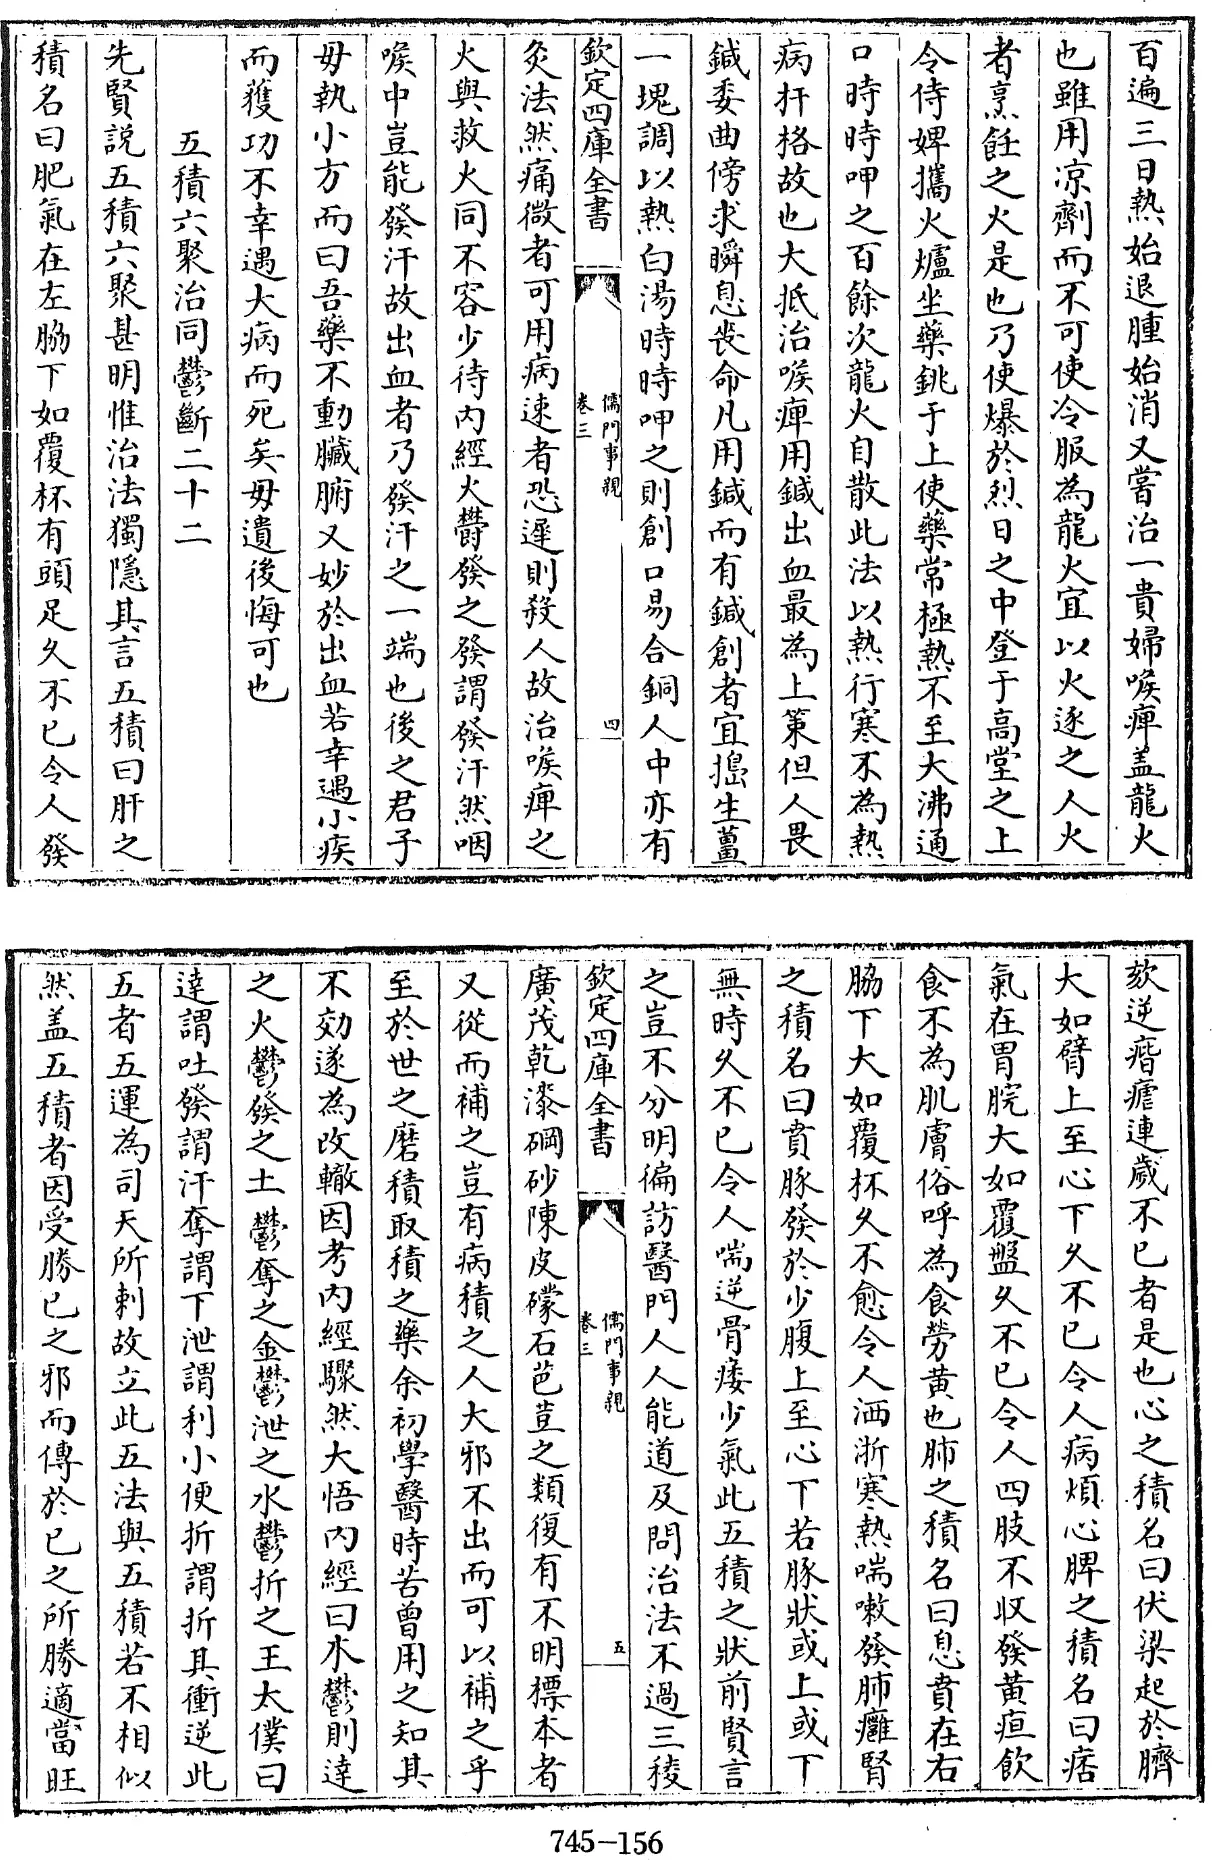 百遍三日熱始退腫始消又嘗治一貴婦喉痺盖龍火
也雖用凉劑而不可使冷服為龍火宜以火逐之人火
者烹飪之火是也乃使爆於烈日之中登于高堂之上
令侍婢攜火爐坐藥銚于上使藥常極熱不至大沸通
口時時呷之百餘次龍火自散此法以熱行寒不為熱
病扞格故也大抵治喉痺用鍼出血最為上策但人畏
鍼委曲傍求瞬息䘮命凡用鍼而有鍼創者宜搗生薑
一塊調以熱白湯時時呷之則創口易合銅人中亦有
欽定四庫全書
儒門事親
卷三
四
灸法然痛微者可用病速者恐遲則殺人故治喉痺之
火與救火同不容少待内經火鬱發之發謂發汗然咽
喉中豈能發汗故出血者乃發汗之一端也後之君子
毋執小方而曰吾藥不動臟腑又妙於出血若幸遇小疾
而獲功不幸遇大病而死矣毋遺後悔可也
五積六聚治同鬱斷二十二
先賢説五積六聚甚明惟治法獨隱其言五積曰肝之
積名曰肥氣在左脇下如覆杯有頭足久不已令人發
欬逆㾬瘧連歲不已者是也心之積名曰伏梁起於臍
大如臂上至心下久不已令人病煩心脾之積名曰痞
氣在胃脘大如覆盤久不已令人四肢不收發黄疸飲
食不為肌膚俗呼為食勞黄也肺之積名曰息賁在右
脇下大如覆杯久不愈令人洒淅寒熱喘嗽發肺癰腎
之積名曰賁豚發於少腹上至心下若豚狀或上或下
無時久不已令人喘逆骨痿少氣此五積之狀前賢言
之豈不分明徧訪醫門人人能道及問治法不過三稜
欽定四庫全書
儒門事親
卷三
五
廣茂乾漆硇砂陳皮礞石芭豆之類復有不明標本者
又從而補之豈有病積之人大邪不出而可以補之乎
至於世之磨積取積之藥余初學醫時苦曾用之知其
不効遂為改轍因考内經驟然大悟内經曰木鬱則達
之火鬱發之土鬱奪之金鬱泄之水鬱折之王太僕曰
達謂吐發謂汗奪謂下泄謂利小便折謂折其衝逆此
五者五運為司天所制故立此五法與五積若不相似
然盖五積者因受勝已之邪而傳於已之所勝適當旺
745-156